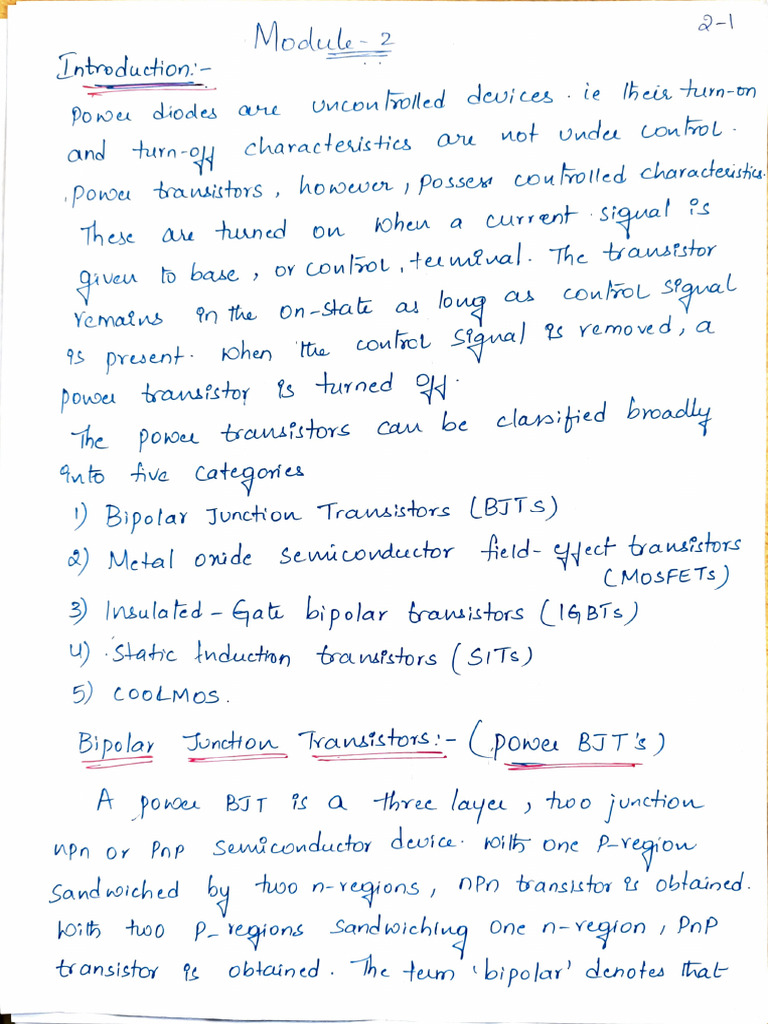 2-1
Module - 2
Introduction:-
Power diodes are uncontrolled devices. ie their turn-on
and turn-off characteristics are not under control.
Power transistors, however, possess controlled characteristics.
These are turned on when a current signal is
given to base, or control, terminal. The transistor
remains in the on-state as long as control signal
is present. When the control signal is removed, a
power transistor is turned off.
The power transistors can be classified broadly
into five categories
1) Bipolar Junction Transistors (BJTS)
2) Metal oxide semiconductor field-effect transistors
(MOSFETs)
3) Insulated-Gate bipolar transistors (IGBTs)
4) Static Induction transistors (SITs)
5) COOLMOS.
Bipolar Junction Transistors:- (Power BJT's)
A power BJT is a three layer, two junction
npn or pnp semiconductor device. With one P-region
sandwiched by two n-regions, npn transistor is obtained.
With two P-regions sandwiching one n-region, PnP
transistor is obtained. The term 'bipolar' denotes that